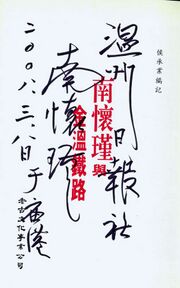 侯承業編記
南懷瑾與
金溫鐵路
老古文化事業公司
温州日報社
南懷瑾
二〇〇八.三.八日于香港